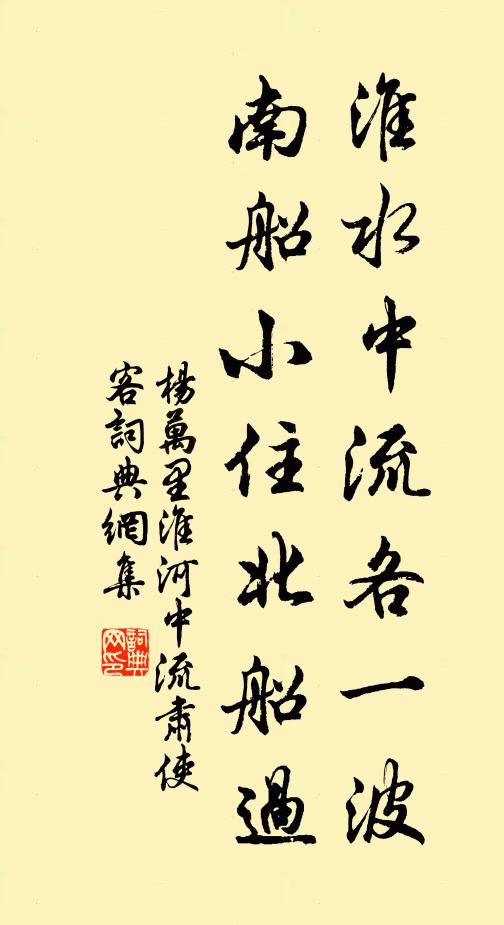 淮水中流各一波
南船小住北船過
楊萬里淮河中流肅使
客詞典網集
詞典
网印